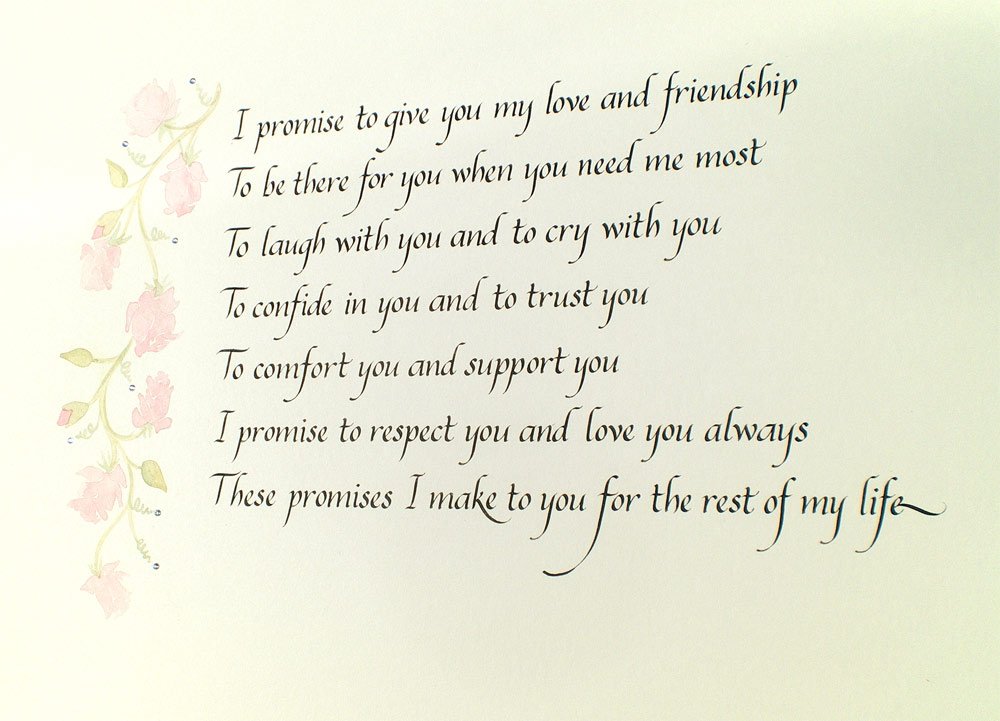 I promise to give you my love and friendship
To be there for you when you need me most
To laugh with you and to cry with you
To confide in you and to trust you
To comfort you and support you
I promise to respect you and love you always
These promises I make to you for the rest of my life